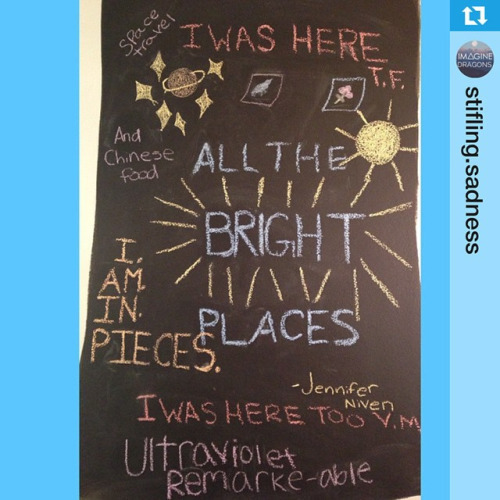 Space
travel
I WAS HERE
T.F.
And
Chinese
food
ALL THE
BRIGHT
PLACES
I.
AM.
IN.
PIECES.
-Jennifer
Niven
I WAS HERE TOO V.M
Ultraviolet
Remarke-able
IMAGINE
DRAGONS
stifling.sadness